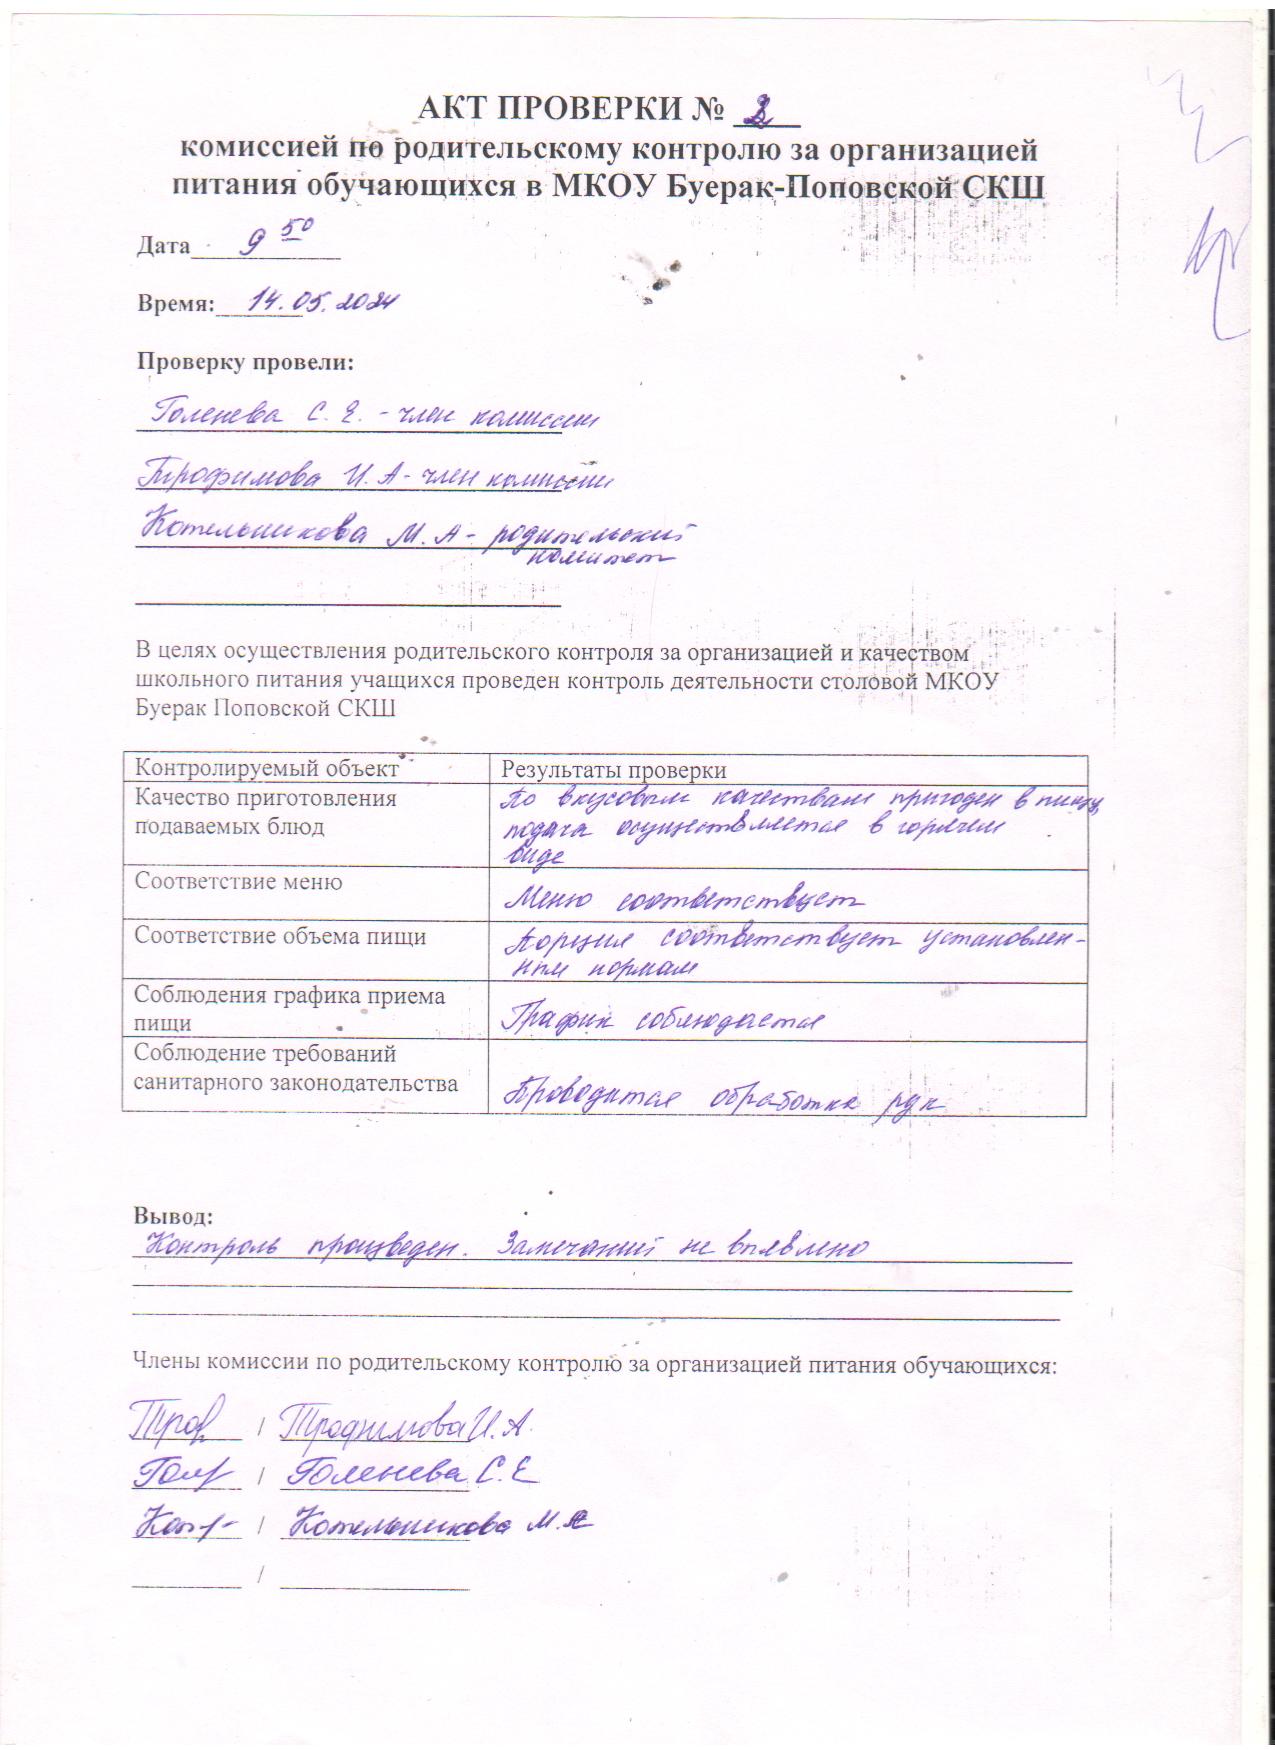 АКТ ПРОВЕРКИ №
комиссией по родительскому контролю за организацией
питания обучающихся в МКОУ Буерак-Поповской СКШ
Дата 9 50
Время: 14.05.2024
Проверку провели:
Голенева С. Е. - член комиссии
Трофимова И. А - член комиссии
Котельникова М. А - родительский
комитет
В целях осуществления родительского контроля за организацией и качеством
школьного питания учащихся проведен контроль деятельности столовой МКОУ
Буерак Поповской СКШ
Контролируемый объект Результаты проверки
Качество приготовления
подаваемых блюд
По вкусовым качествам пригоден в пищу,
подача осуществляется в горячем
виде
Соответствие меню Меню соответствует
Соответствие объема пищи Порция соответствует установлен-
ным нормам
Соблюдения графика приема
пищи
График соблюдается
Соблюдение требований
санитарного законодательства
Проводится обработка рук
Вывод:
Контроль произведен. Замечаний не выявлено
Члены комиссии по родительскому контролю за организацией питания обучающихся:
/ Трофимова И. А.
/ Голенева С. Е
/ Котельникова М. А
/